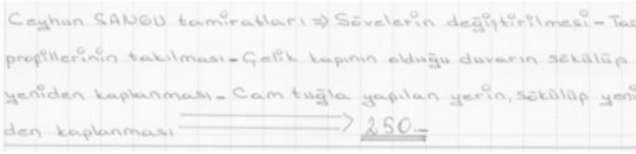 Ceyhun SANGU tamiratları => Sövelerin değiştirilmesi - Taç
profillerinin takılması - Çelik kapının olduğu duvarın sökülüp
yeniden kaplanması - Cam tuğla yapılan yerin, sökülüp yeni
den kaplanması => 250.-